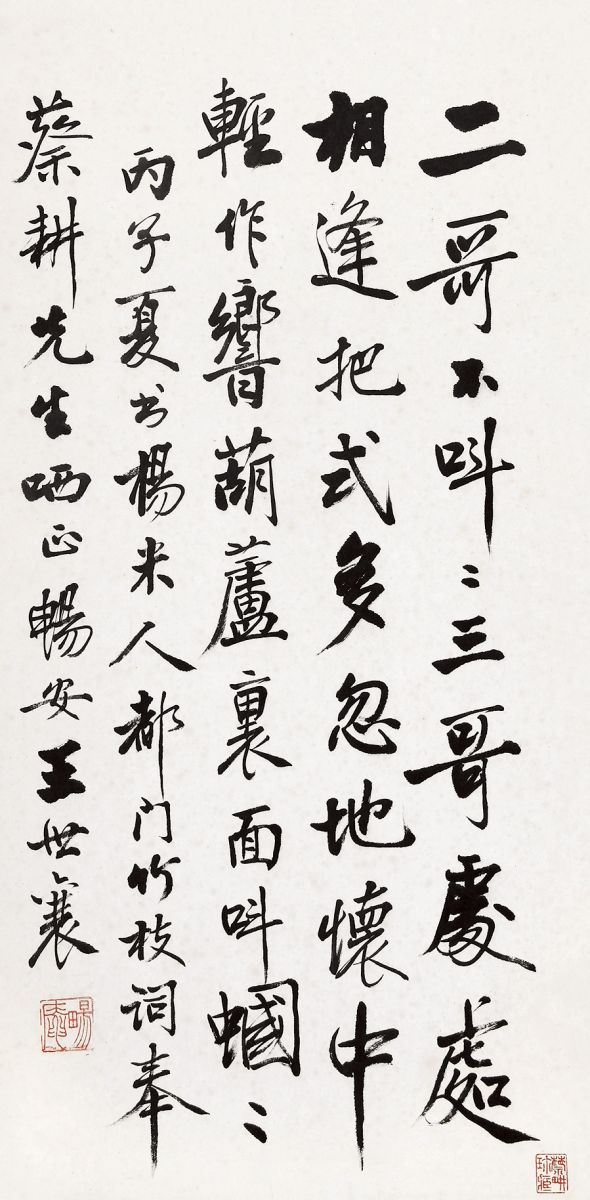 二哥不呌〻三哥處處
相逢把式多忽地懷中
輕作響葫蘆裏面呌蟈〻
丙子夏书楊米人都门竹枝詞奉
蔡耕先生哂正暢安王世襄
蔡耕珍藏